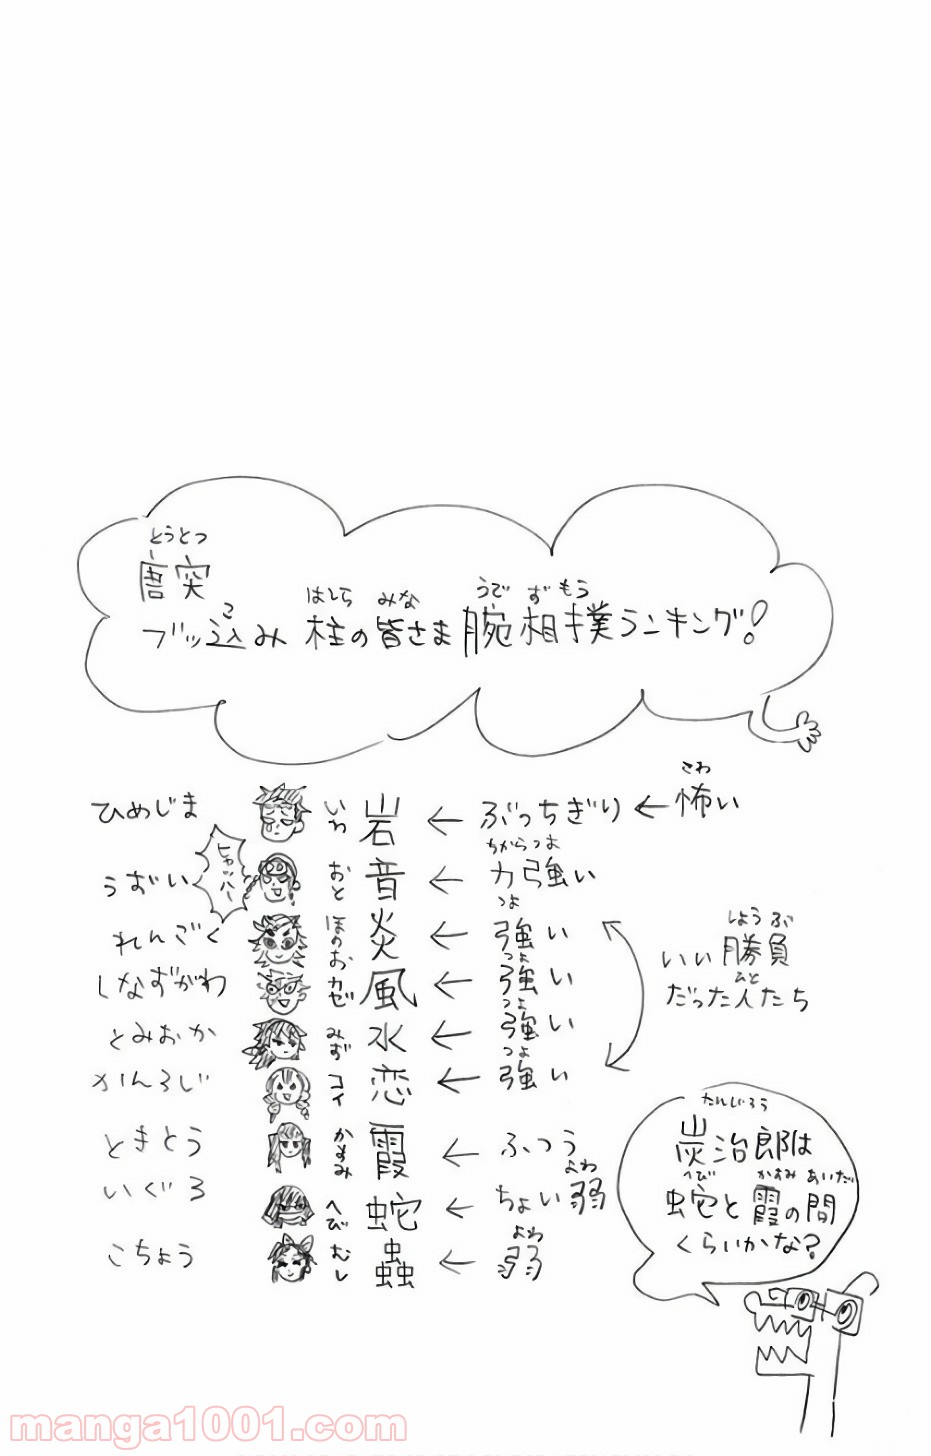 とうとつ
唐突
こ はしら みな うで ずもう
ブッ込み 柱の皆さま腕相撲ランキング!
こわ
ひめじま いわ 岩 ← ぶっちぎり ← 怖い
ヒャッハー
ちからつよ
うずい おと 音 ← 力強い
つよ
れんごく ほのお 炎 ← 強い
つよ
しなずがわ カゼ 風 ← 強い
つよ
とみおか みず 水 ← 強い
つよ
かんろじ コイ 恋 ← 強い
しょうぶ
いい勝負
ひと
だった人たち
ときとう かすみ 霞 ← ふつう
よわ
いぐろ へび 蛇 ← ちょい弱
よわ
こちょう むし 蟲 ← 弱
たんじろう
炭治郎は
へび かすみ あいだ
蛇と霞の間
くらいかな?
manga1001.com